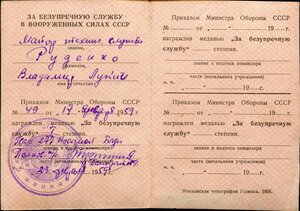 ЗА БЕЗУПРЕЧНУЮ СЛУЖБУ
В ВООРУЖЕННЫХ СИЛАХ СССР
Майор технич. службы
звание,
Руденко
фамилия,
Владимир
имя, отчество
Приказом Министра Обороны СССР
№ 49 от 17 февраля 1959 г.
награжден медалью „За безупречную
службу" степени.
М. П.
25 1959 г.
Приказом Министра Обороны СССР
№ от 19 г.
награжден медалью „За безупречную
службу" степени.
звание и подпись командира
м. п.
части (начальника учреждения)
19 г.
Приказом Министра Обороны СССР
№ от 19 г.
награжден медалью „За безупречную
службу" степени.
звание и подпись командира
м. п.
части (начальника учреждения)
19 г.
Московская типография Гознака. 1958.